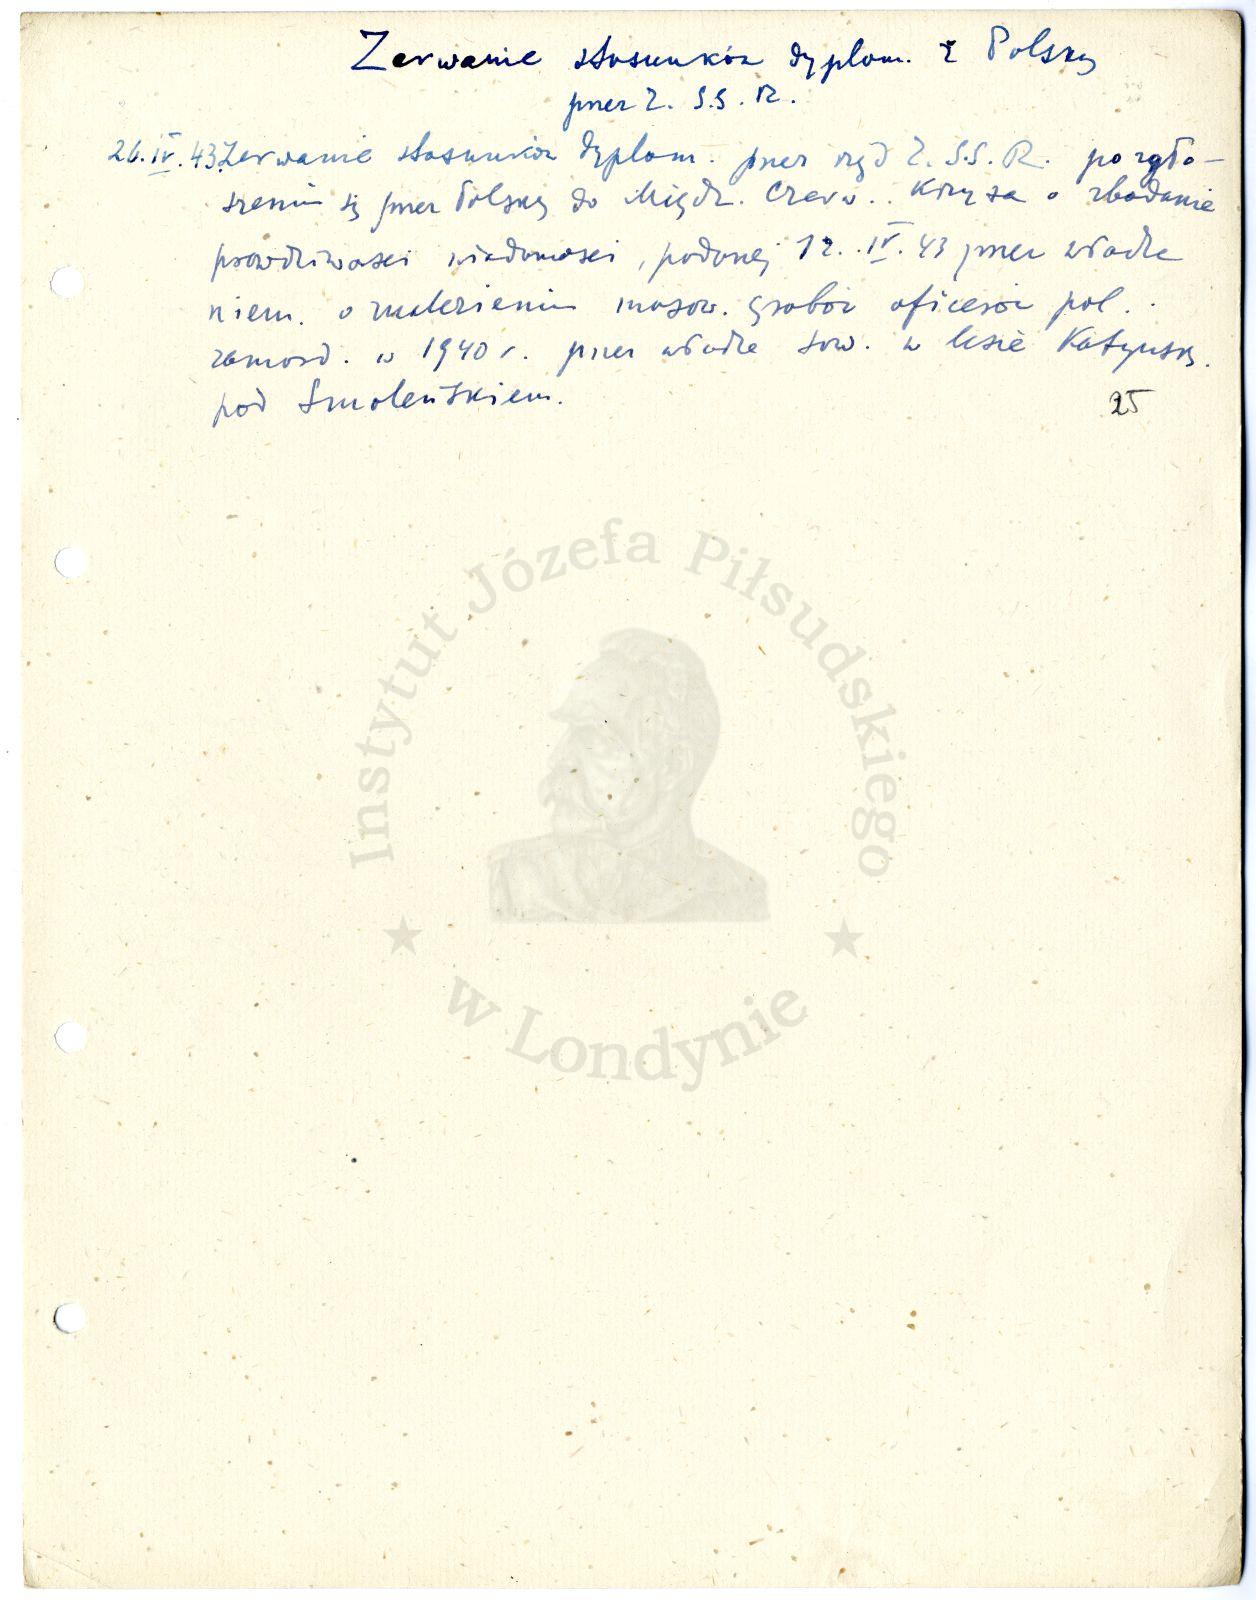 Zerwanie stosunków dyplom. z Polską
przez Z. S.S. R.
26.IV.43. Zerwanie stosunków dyplom. przez rząd Z. S.S. R. po zgło-
szeniu się przez Polskę do Międz. Czerw. Krzyża o zbadanie
prawdziwości wiadomości, podanej 12. IV. 43 przez władze
niem. o znalezieniu masow. grobów oficerów pol.
zamord. w 1940 r. przez władze sow. w lesie Katyńsk.
pod Smoleńskiem.
25
Instytut Józefa Piłsudskiego
w Londynie